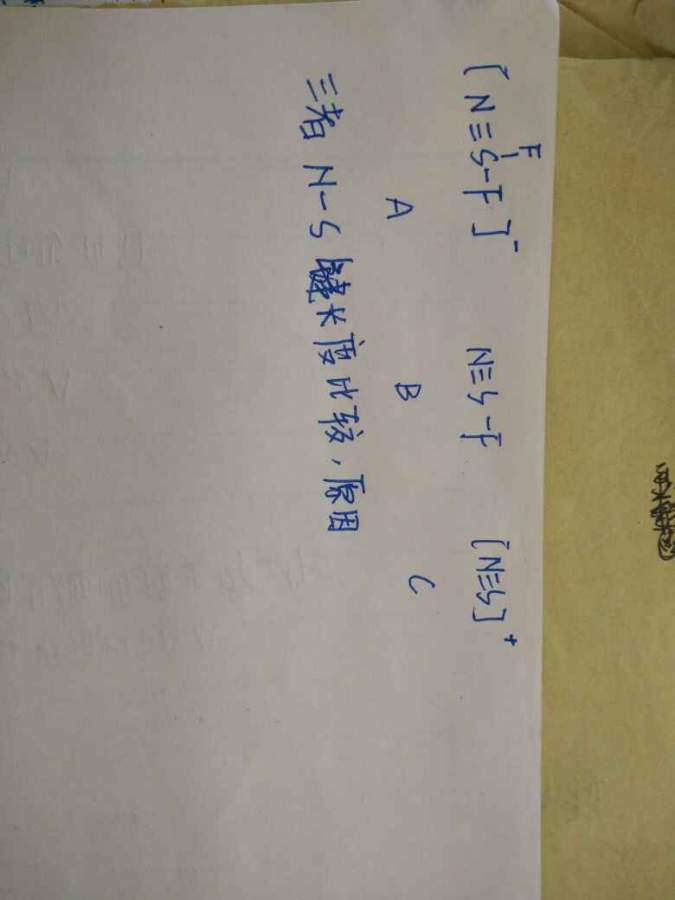 F
[N≡S-F]⁻ N≡S-F [N≡S]⁺
A B C
三者 N-S 键长度比较，原因